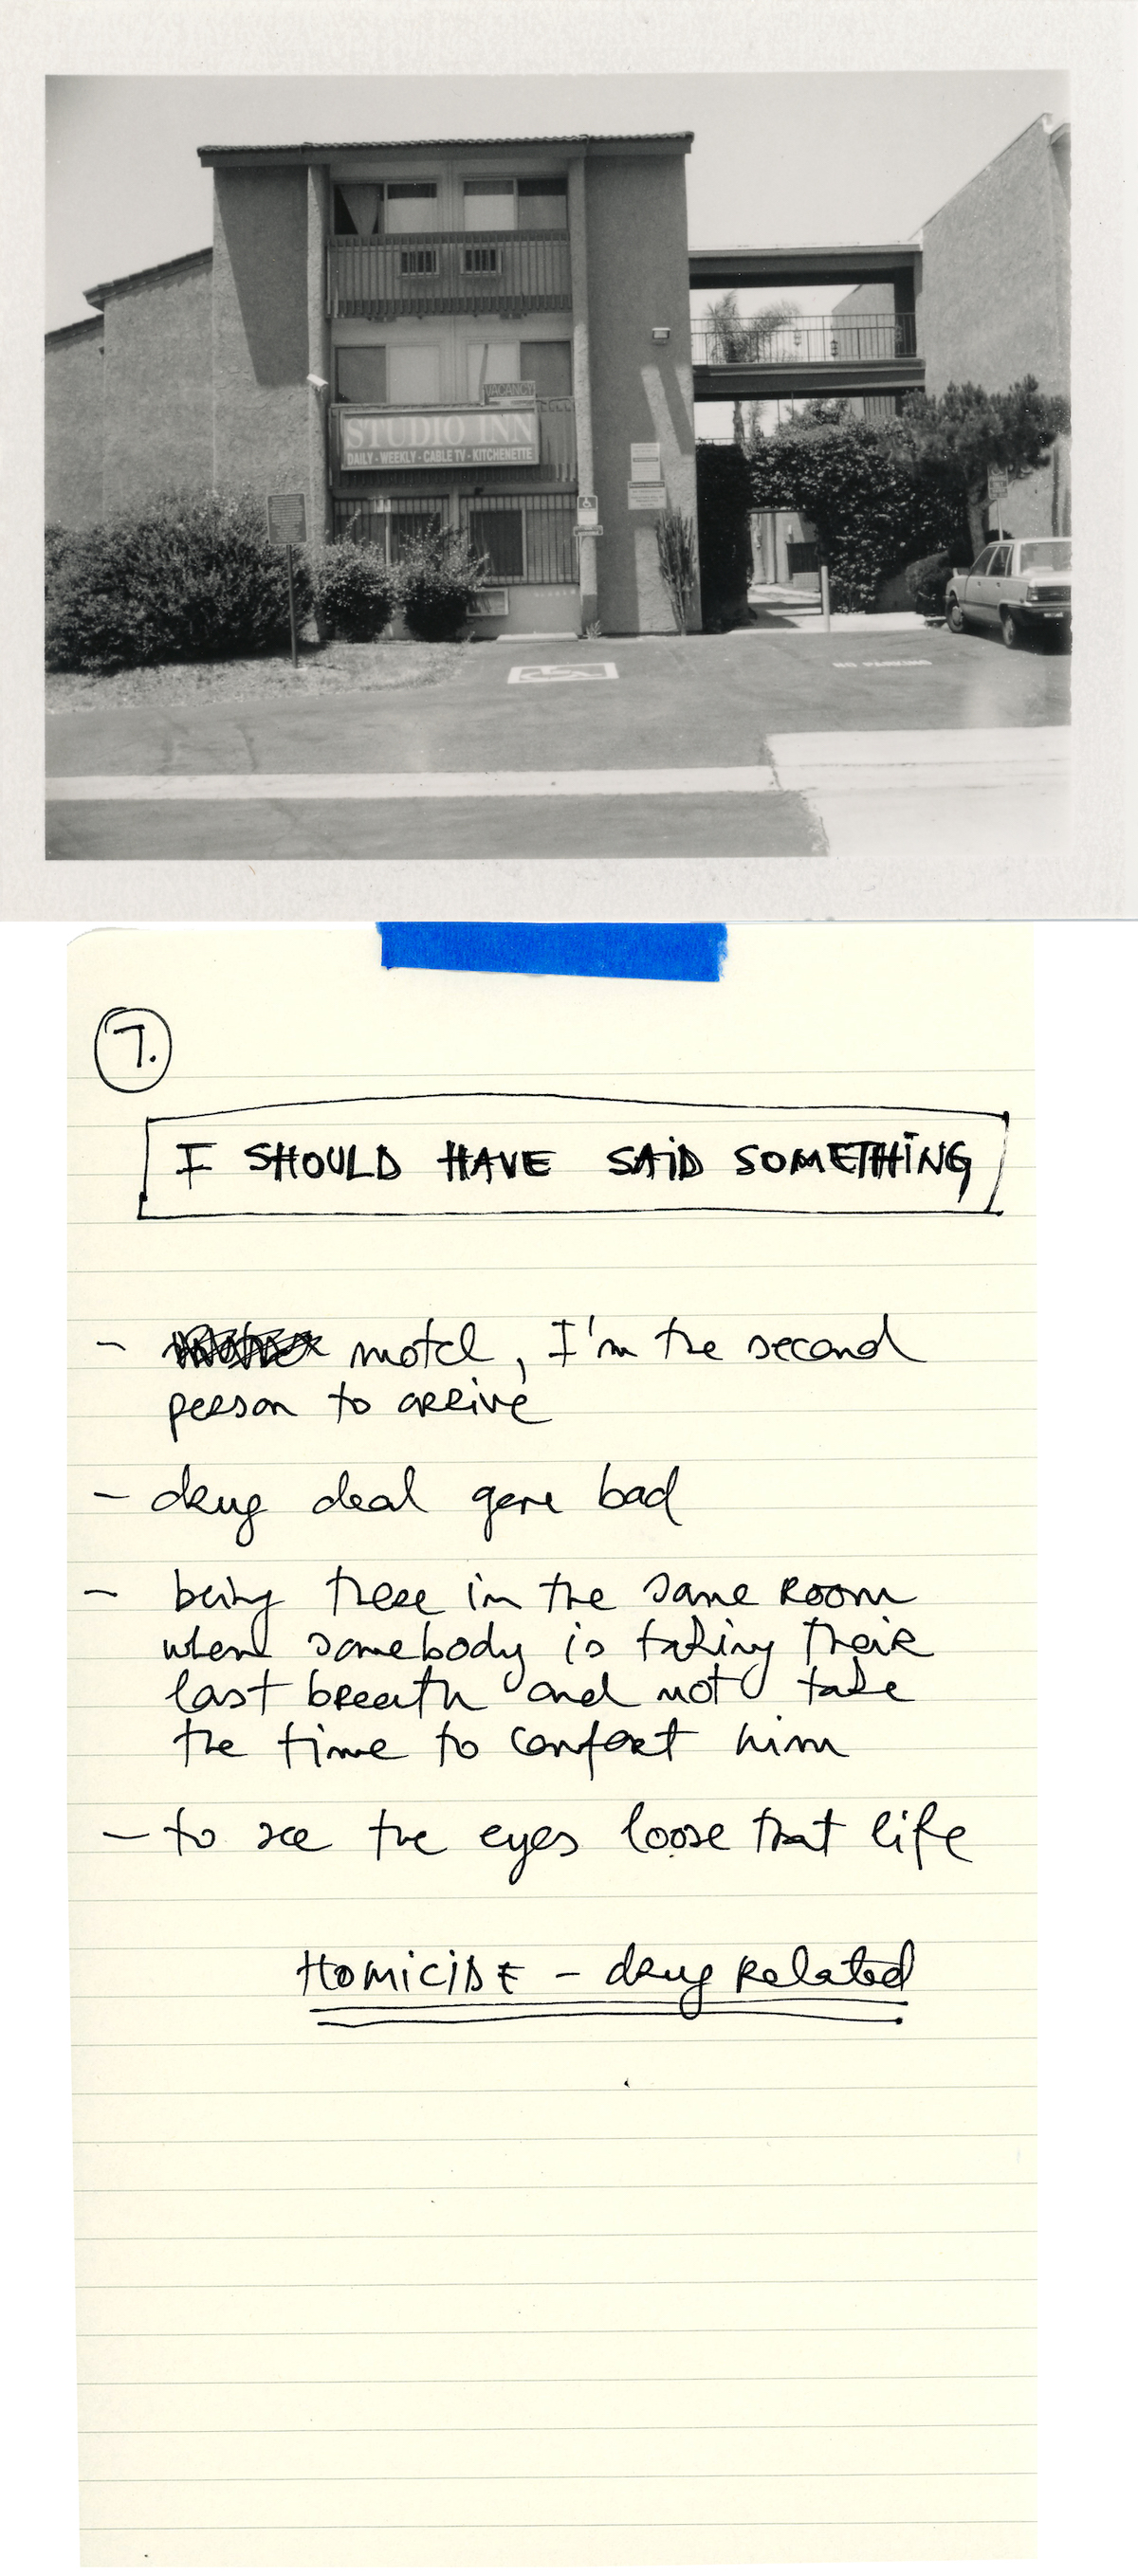 VACANCY
STUDIO INN
DAILY - WEEKLY - CABLE TV - KITCHENETTE
NO PARKING
7.
I SHOULD HAVE SAID SOMETHING
- motel, I'm the second
person to arrive
- drug deal gone bad
- being there in the same room
when somebody is taking their
last breath and not take
the time to confort him
- to see the eyes loose that life
HOMICIDE - drug related